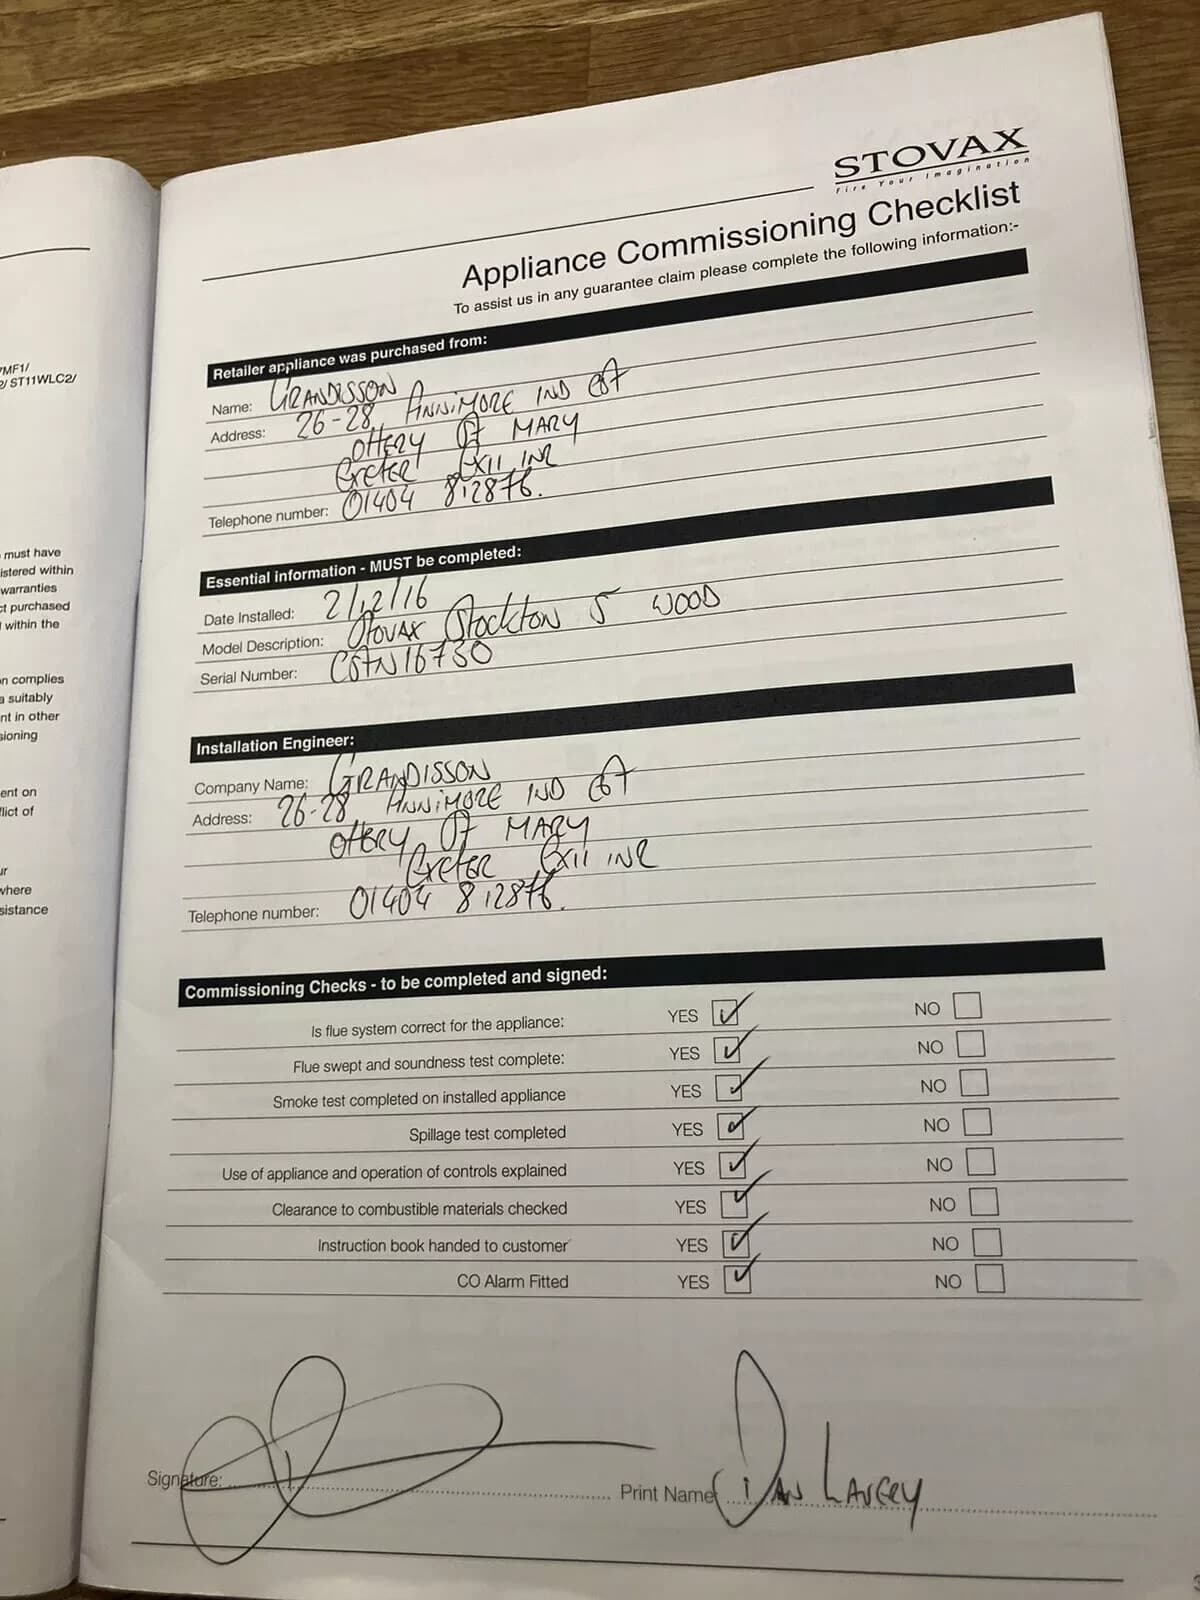 STOVAX
Fire Your Imagination
Appliance Commissioning Checklist
To assist us in any guarantee claim please complete the following information:-
Retailer appliance was purchased from:
Name: GRANDISSON
Address: 26-28 ANNiMORE IND EST
OTTERY ST MARY
EXETER EX11 1NR
Telephone number: 01404 812876.
Essential information - MUST be completed:
Date Installed: 2/12/16
Model Description: STOVAX Stockton 5 WOOD
Serial Number: CSAN16730
Installation Engineer:
Company Name: GRANDISSON
Address: 26-28 ANNiMORE IND EST
OTTERY ST MARY
EXETER EX11 1NR
Telephone number: 01404 812876.
Commissioning Checks - to be completed and signed:
Is flue system correct for the appliance: YES NO
Flue swept and soundness test complete: YES NO
Smoke test completed on installed appliance YES NO
Spillage test completed YES NO
Use of appliance and operation of controls explained YES NO
Clearance to combustible materials checked YES NO
Instruction book handed to customer YES NO
CO Alarm Fitted YES NO
Signature: Print Name: DAN LAVERY
/MF1/
2/ ST11WLC2/
must have
istered within
warranties
ct purchased
within the
on complies
a suitably
nt in other
sioning
ent on
flict of
ur
where
sistance